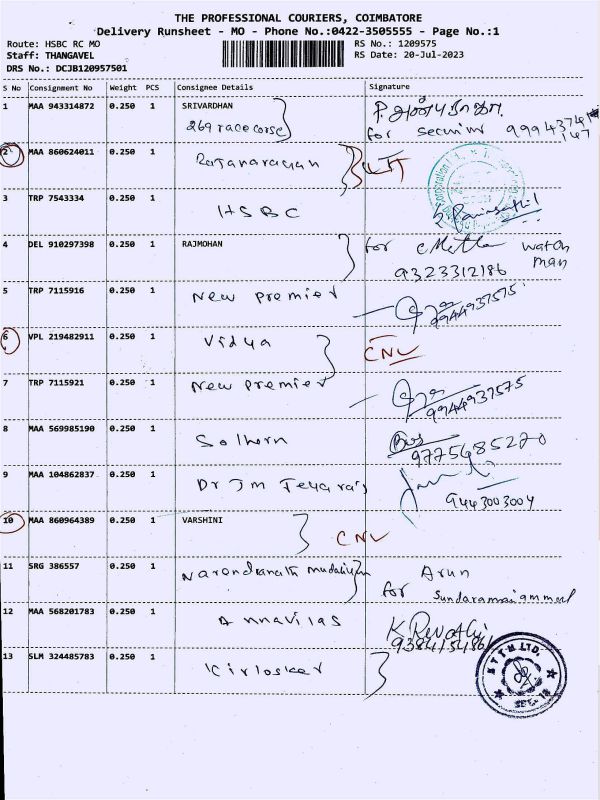 THE PROFESSIONAL COURIERS, COIMBATORE
Delivery Runsheet - MO - Phone No.:0422-3505555 - Page No.:1
Route: HSBC RC MO RS No.: 1209575
Staff: THANGAVEL RS Date: 20-Jul-2023
DRS No.: DCJB120957501
S No Consignment No Weight PCS Consignee Details Signature
1 MAA 943314872 0.250 1 SRIVARDHAN
269 racecorse for 9994374147
2 MAA 860624011 0.250 1 Rajanarayan
3 TRP 7543334 0.250 1 HSBC
4 DEL 910297398 0.250 1 RAJMOHAN for watch
9323312186 man
5 TRP 7115916 0.250 1 New premier 9944937575
6 VPL 219482911 0.250 1 Vidya CNL
7 TRP 7115921 0.250 1 New premier 9944937575
8 MAA 569985190 0.250 1 Solhern 9775685220
9 MAA 104862837 0.250 1 Dr Jm Jeyaraj 9443003004
10 MAA 860964389 0.250 1 VARSHINI CNL
11 SRG 386557 0.250 1 Narendranath mudaliyar Arun
for
12 MAA 568201783 0.250 1 Annavilas K Revathy
13 SLM 324485783 0.250 1 Kirlosker